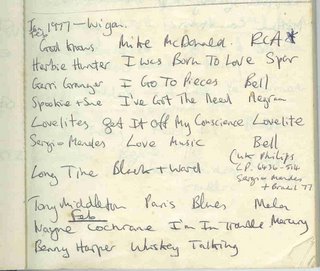 Jan 1977 - Wigan.
God knows. Mike McDonald. RCA*
Herbie Hunter I Was Born To Love Spar
Gerri Granger I Go To Pieces Bell
Spookie + Sue I've Got The Need
Lovelites Get It Off My Conscience Lovelite
Sergio Mendes Love Music Bell
(UK Philips
L.P. 6436-514
Sergio Mendes
+ Brazil 77
Long Time Black + Ward
Tony Middleton Paris Blues Mala
Feb
Wayne Cochrane I'm In Trouble Mercury
Benny Harper Whiskey Talking